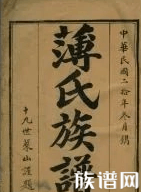 中華民國二拾年冬月鐫
薄氏族譜
十九世葉山謹題
族谱网